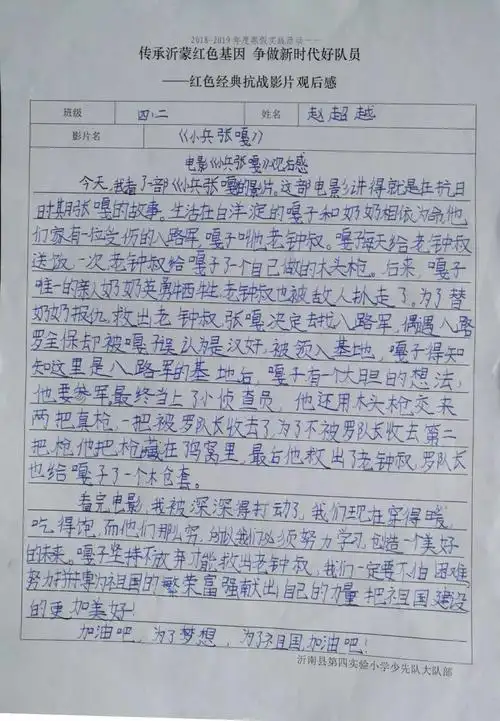 2018-2019年度寒假实践活动一一
传承沂蒙红色基因 争做新时代好队员
——红色经典抗战影片观后感
班级 四.二 姓名 赵超越
影片名 《小兵张嘎》
电影《小兵张嘎》观后感
今天,我看了一部《小兵张嘎》的影片,这部电影讲得就是在抗日
时期张嘎的故事。生活在白洋淀的嘎子和奶奶相依为命,他
们家有一位受伤的八路军,嘎子叫他老钟叔。嘎子每天给老钟叔
送饭,一次老钟叔给嘎子了一个自己做的木头枪。后来,嘎子
唯一的亲人奶奶英勇牺牲,老钟叔也被敌人扒走了。为了替
奶奶报仇,救出老钟叔,张嘎决定去找八路军,偶遇八路
罗金保却被嘎子误认为是汉奸,被领入基地,嘎子得知
知这里是八路军的基地后,嘎子有一个大胆的想法,
他要参军,最终当上了小侦查员,他还用木头枪交来
两把真枪,一把被罗队长收去了,为了不被罗队长收去第二
把枪他把枪藏在鸟窝里,最后他救出了老钟叔,罗队长
也给嘎子了一个木仓套。
看完电影,我被深深得打动了,我们现在穿得暖,
吃得饱,而他们那么穷,所以我们必须努力学习,创造一个美好
的未来。嘎子坚持不放弃才能救出老钟叔,我们一定要不怕困难,
努力拼搏,为祖国的繁荣富强献出自己的力量,把祖国建设
的更加美好!
加油吧,为了梦想,为了祖国,加油吧!
沂南县第四实验小学少先队大队部